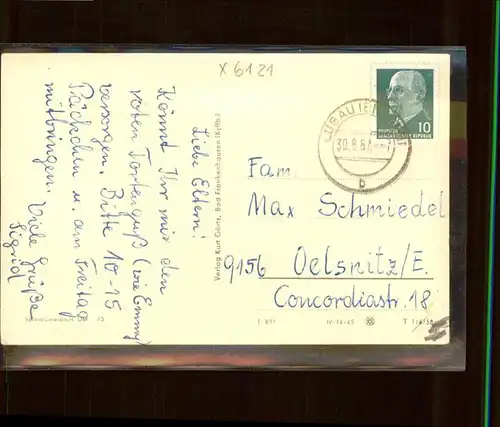 x 6121
Liebe Eltern!
Könnt Ihr mir den
roten Tortenguß (wie Emmy)
versorgen. Bitte 10-15
Päckchen u. am Freitag
mitbringen. Viele Grüße
Sigrid
Verlag Kurt Görtz, Bad Frankenhausen (Kyffh.)
10
DEUTSCHE DEMOKRATISCHE REPUBLIK
30.8.67
b
Fam.
Max Schmiedel
9156 Oelsnitz/E.
Concordiastr. 18
IV-14-45